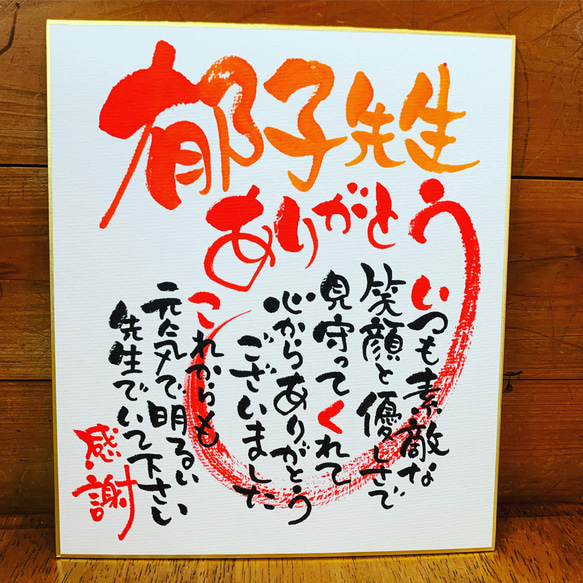 郁子先生
ありがとう
いつも素敵な
笑顔と優しさで
見守ってくれて
心からありがとう
ございました
これからも
元気で明るい
先生でいて下さい
感謝